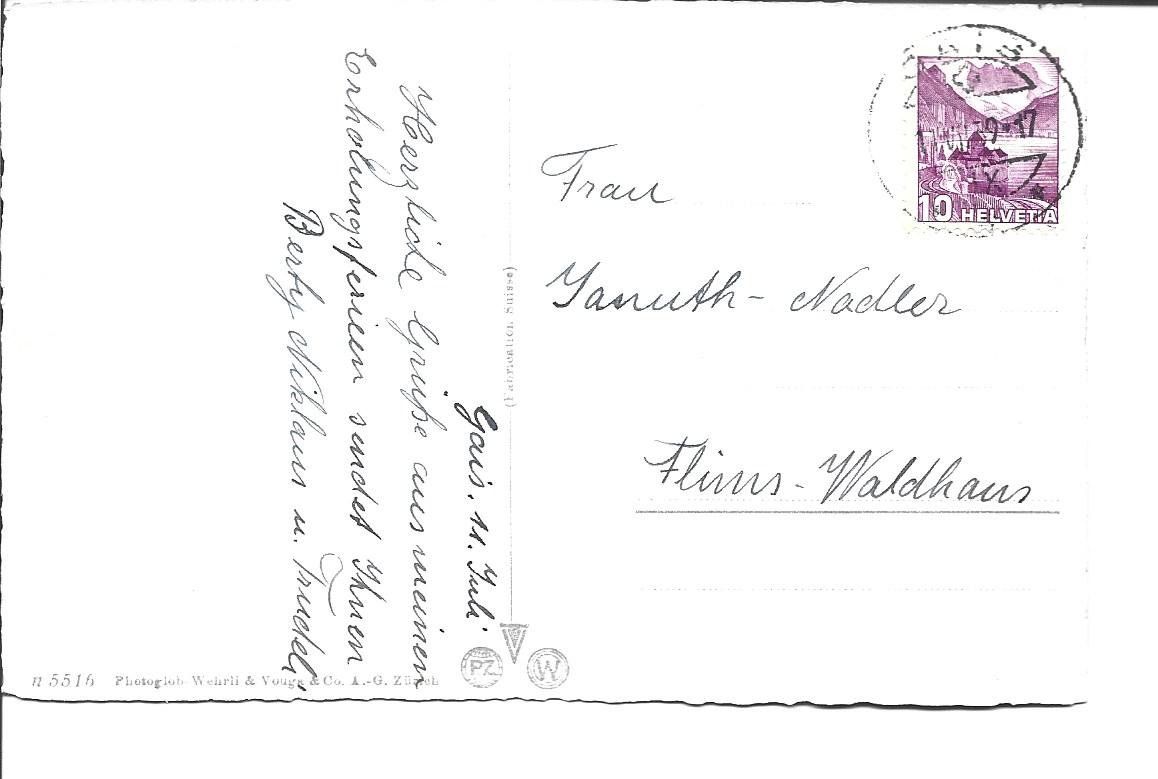 Gais. 11. Juli
Herzliche Grüße aus meinen
Erholungsferien sendet Ihnen
Berty Niklaus u. Trudeli
Frau
Januth - Nadler
Flims - Waldhaus
GAIS
10 HELVETIA
(Fabrication Suisse)
PZ
W
n 5516 Photoglob-Wehrli & Vouga & Co. A.-G. Zürich